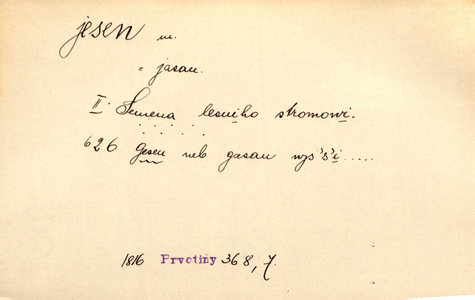 jesen m.
= jasan.
II. Semena lesního stromoví.
626 Gesen neb gasan wyšší.....
1816 Prvotiny 368, 7.